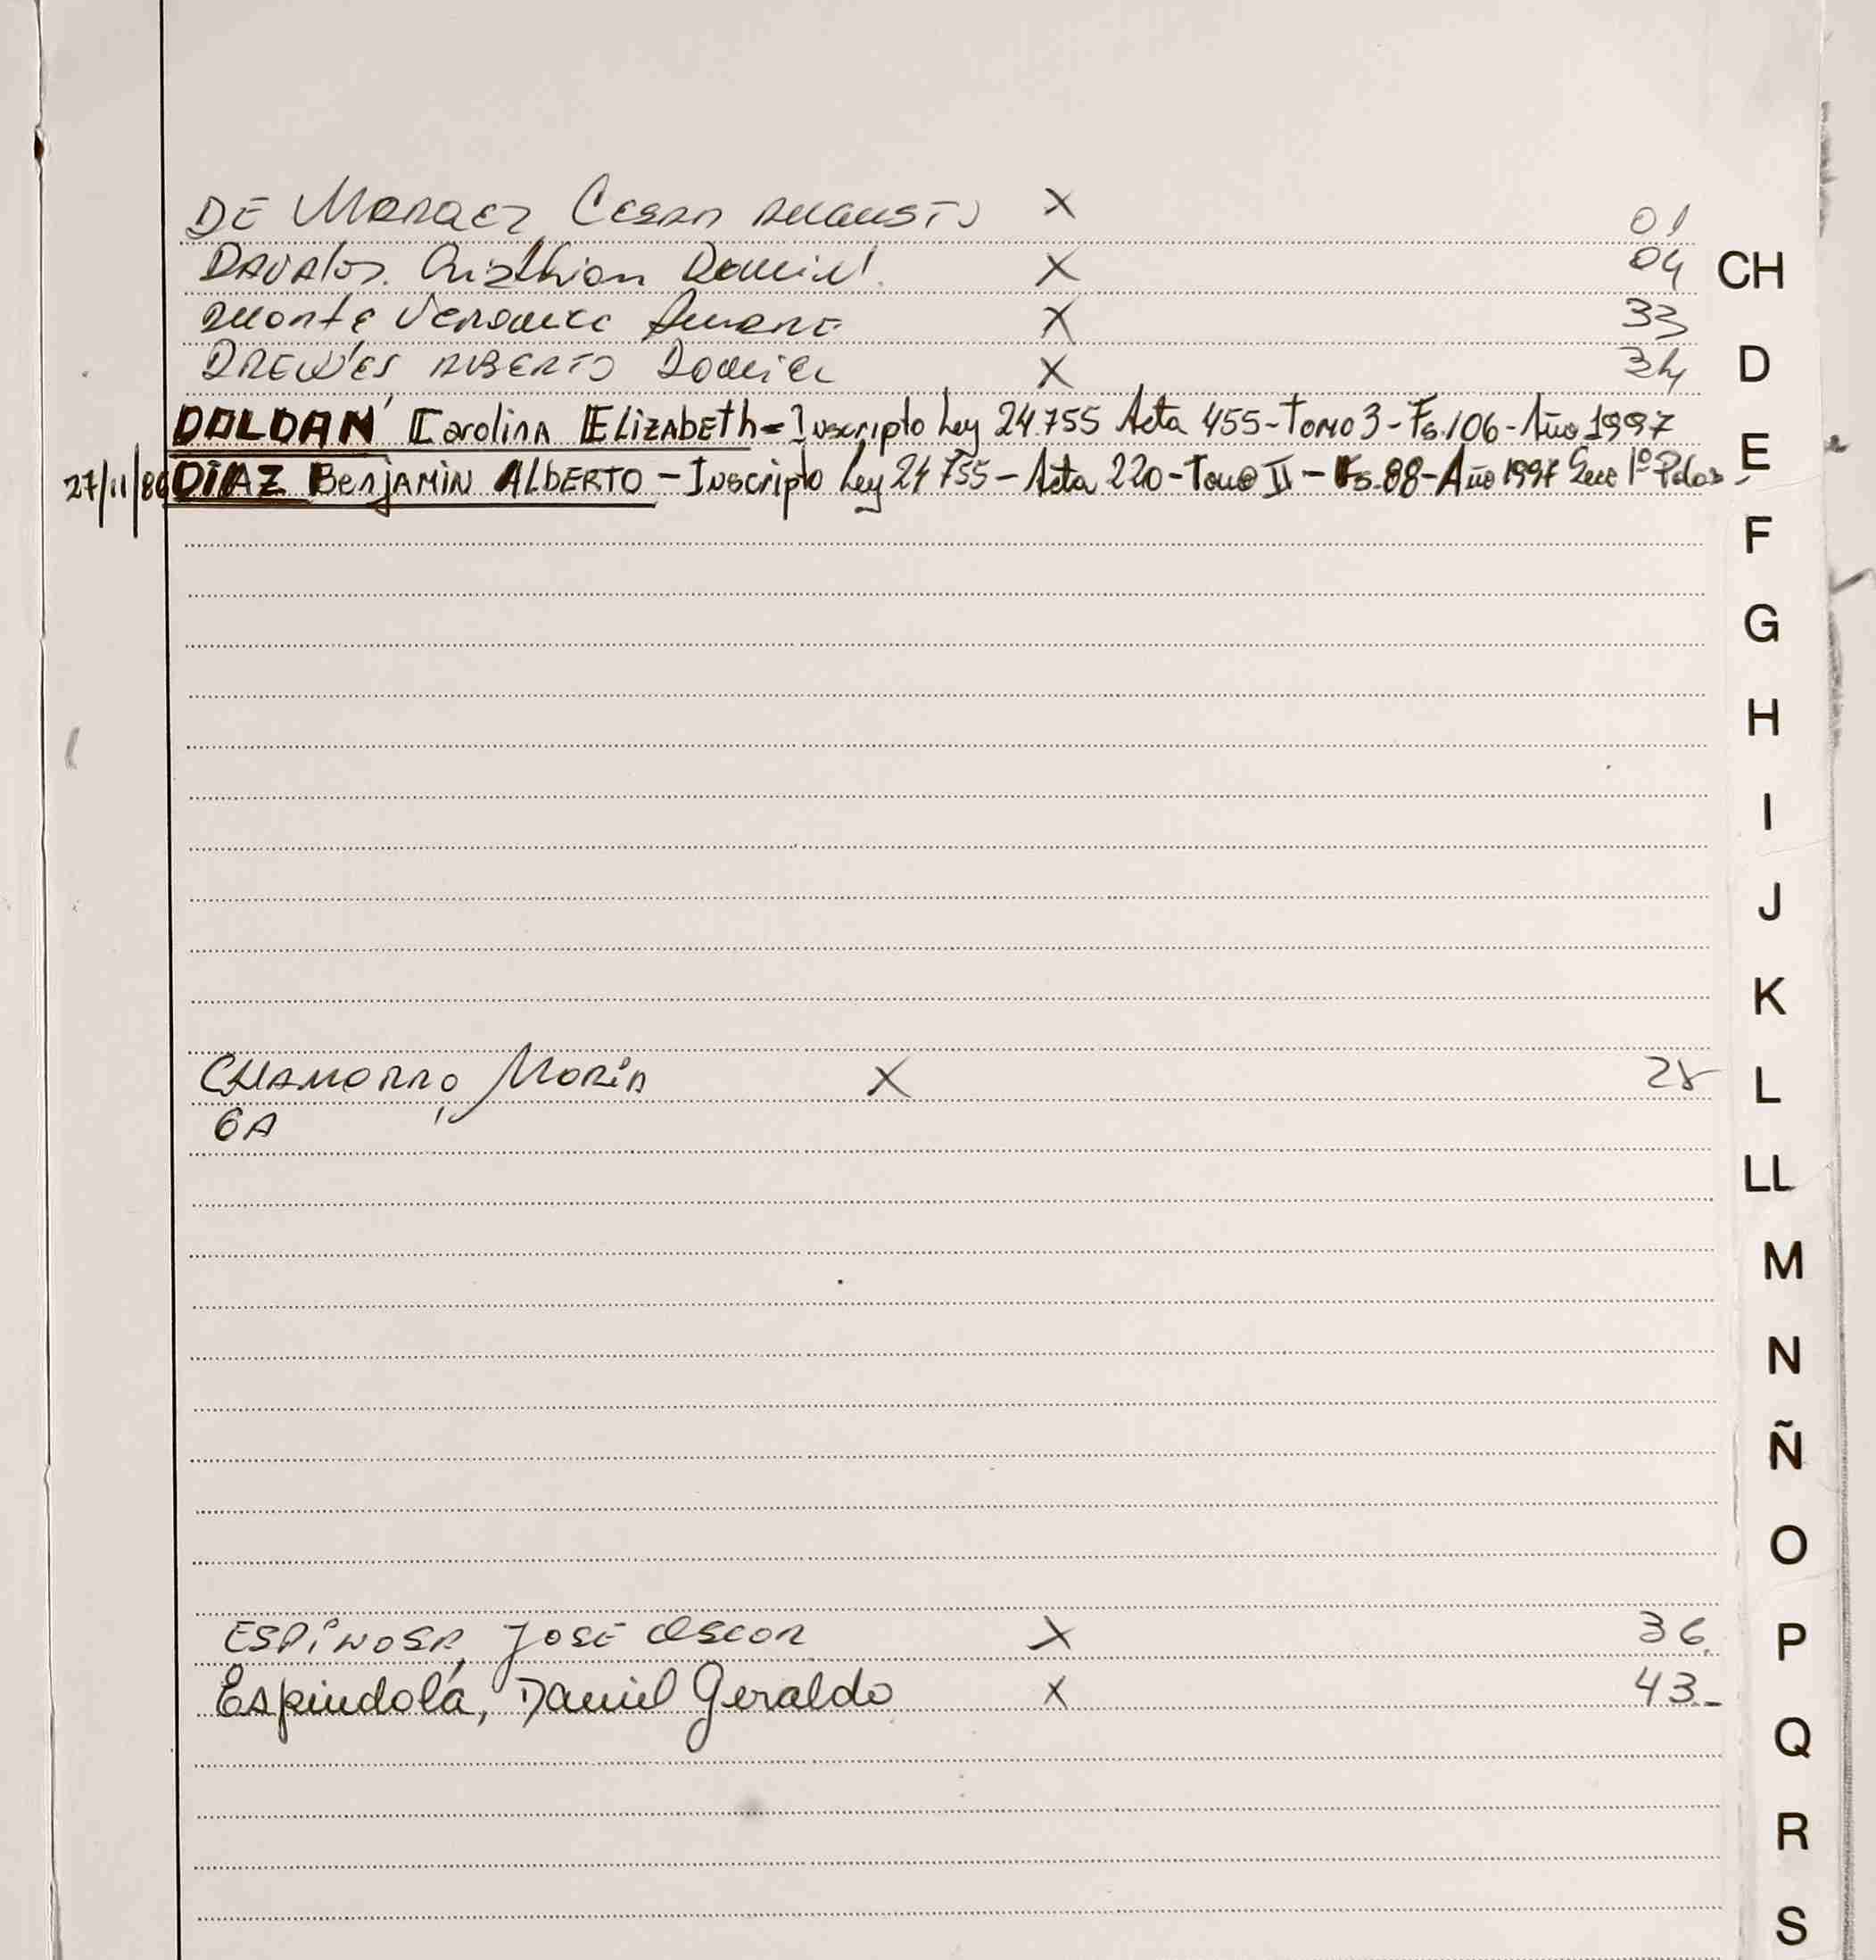 DE Moraez, Cesar Augusto X 01
Davalos. Cristhian Daniel. X 04 CH
Duarte Veronica X 33
DREWES ALBERTO Daniel X 34 D
DOLDAN Carolina Elizabeth - Inscripto Ley 24.755 Acta 455 - Tomo 3 - Fs. 106 - Año 1997
27/11/86 DIAZ Benjamin ALBERTO - Inscripto Ley 24755 - Acta 220 - Tomo II - Fs. 88 - Año 1997 1º E
F
G
H
I
J
K
CHAMORRO, Maria X 28 L
LL
M
N
Ñ
O
ESPINOSA, JOSE OSCAR X 36. P
Espindola, Daniel Geraldo X 43.-
Q
R
S